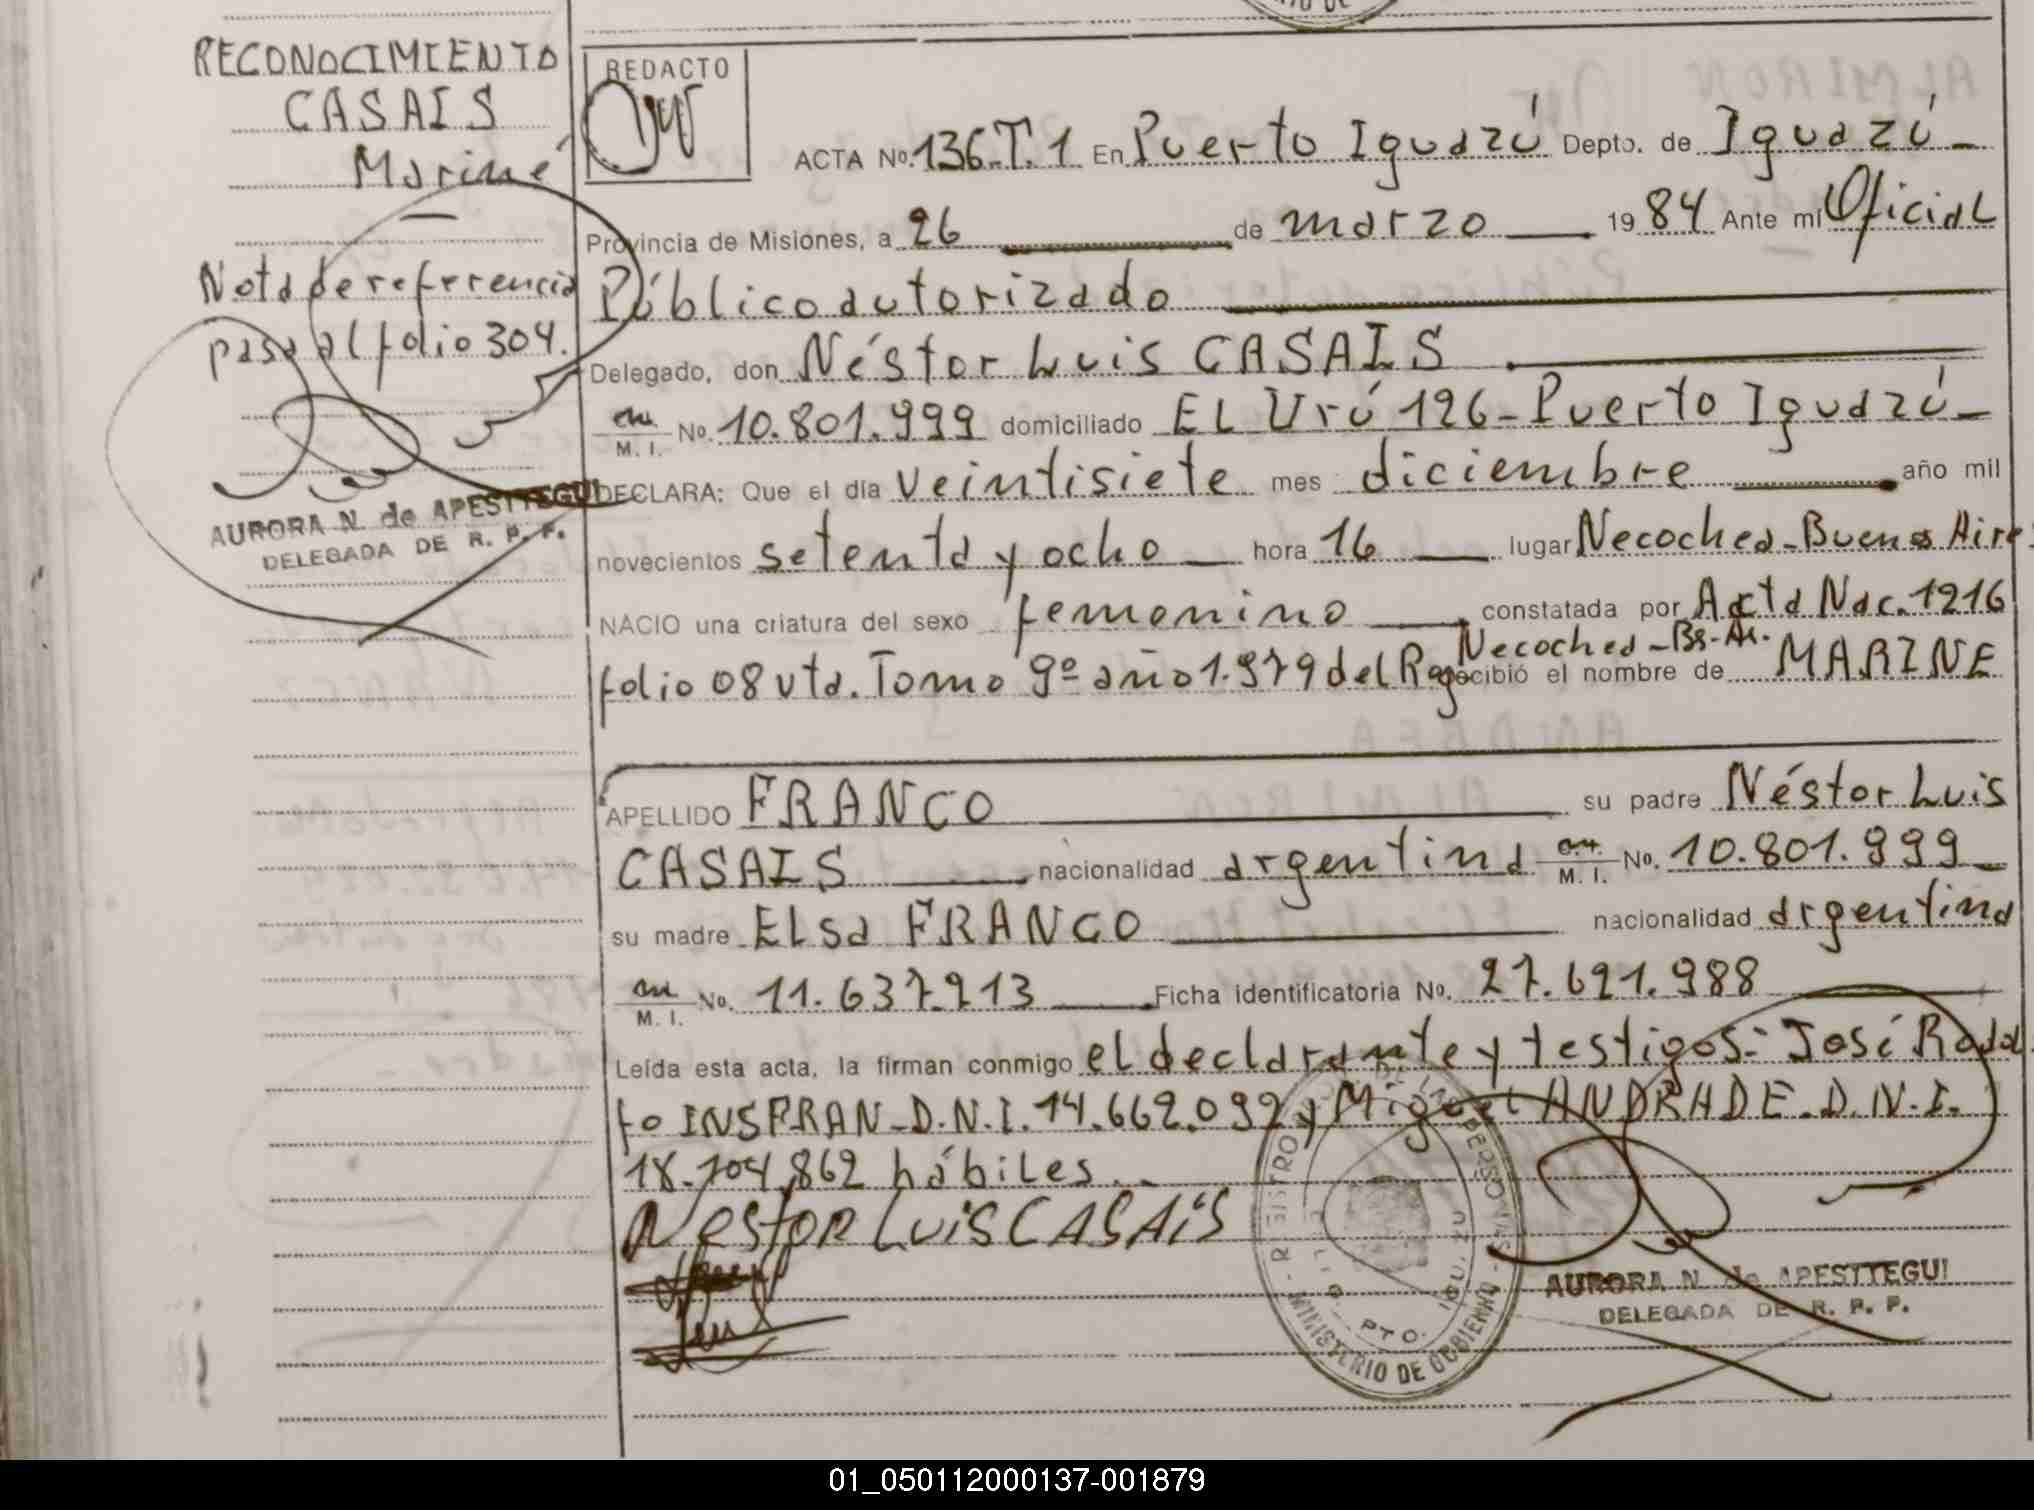 RECONOCIMIENTO
CASAIS
Mariné
Nota de referencia
pasa al folio 304.
AURORA N. de APESTTEGUI
DELEGADA DE R. P. P.
REDACTO
ACTA No. 136-T.1 En Puerto Iguazú Depto. de Iguazú-
Provincia de Misiones, a 26 de marzo 1984 Ante mí Oficial
Público autorizado
Delegado, don Néstor Luis CASAIS
M. I. No. 10.801.999 domiciliado EL Urú 126-Puerto Iguazú-
DECLARA: Que el día veintisiete mes diciembre año mil
novecientos setenta y ocho hora 16 lugar Necochea-Buenos Aires
NACIO una criatura del sexo femenino constatada por Acta Nac. 1216
Necochea-Bs-As.
folio 08 vta. Tomo 9º año 1.979 del Reg recibió el nombre de MARINE
APELLIDO FRANCO su padre Néstor Luis
CASAIS nacionalidad argentina M. I. No. 10.801.999
su madre ELsa FRANCO nacionalidad argentina
M. I. No. 11.637.913 Ficha identificatoria No. 27.691.988
Leída esta acta, la firman conmigo el declarante y testigos:- José Rodol
fo INSFRAN-D.N.I. 14.662.092 y Miguel ANDRADE.D.N.I.
18.704.862 hábiles.-
Nestor Luis CASAIS
REGISTRO DE LAS PERSONAS
PTO. IGUAZU
MINISTERIO DE GOBIERNO
AURORA N. de APESTTEGUI
DELEGADA DE R. P. P.
01_050112000137-001879